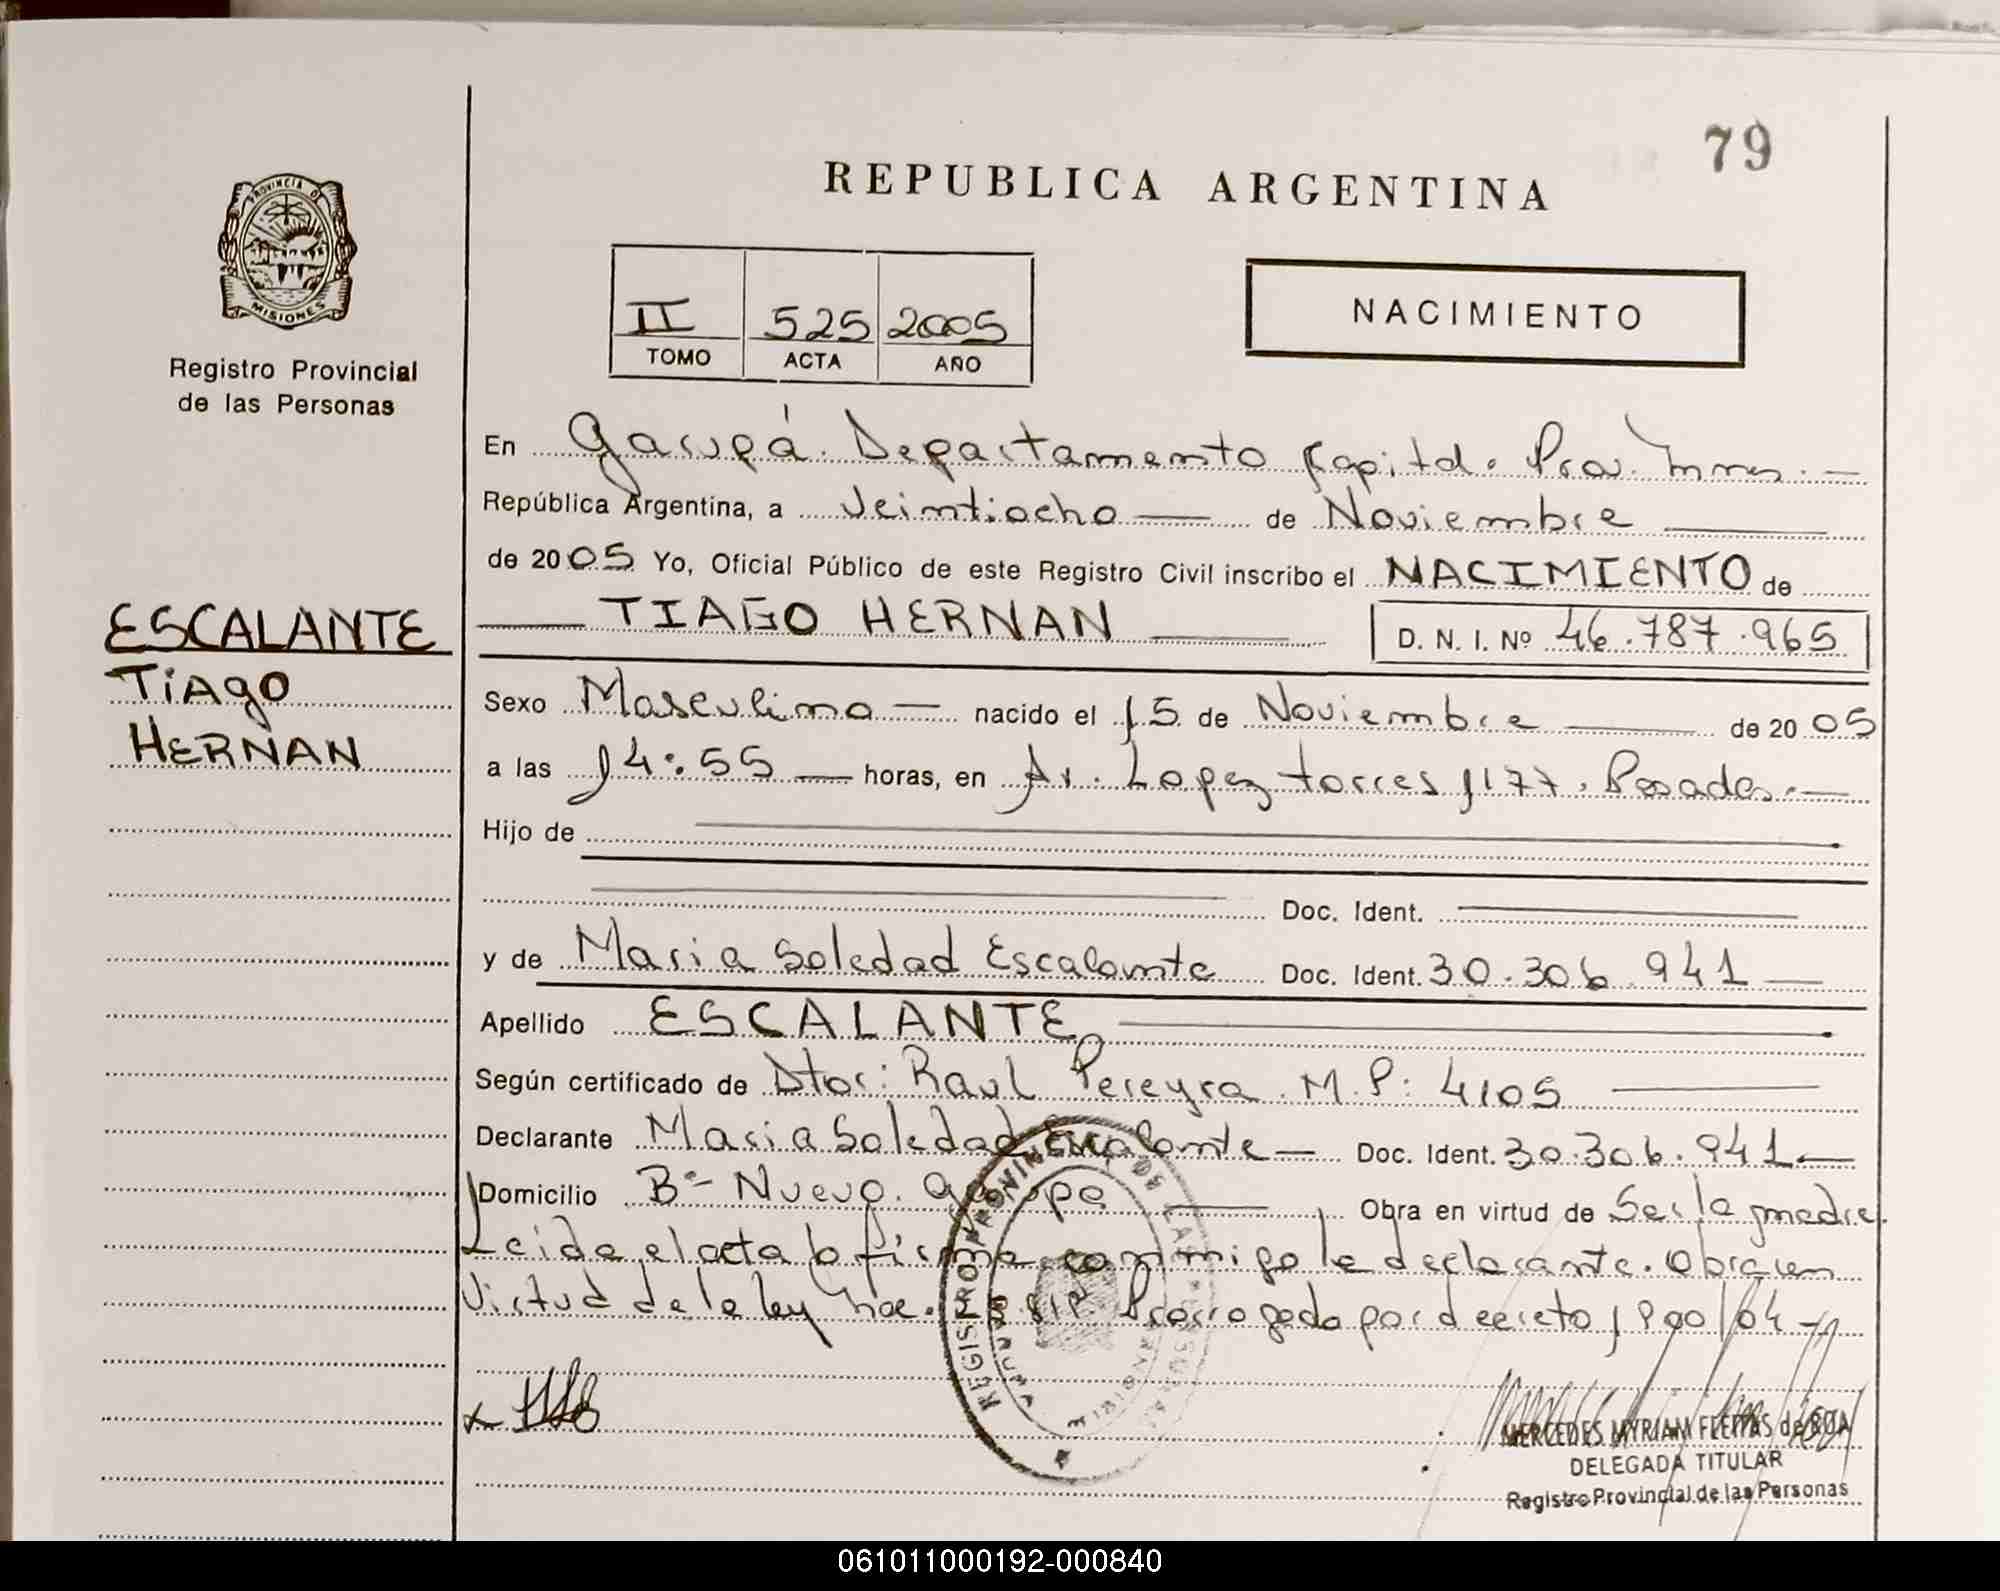 79
REPUBLICA ARGENTINA
PROVINCIA DE
MISIONES
Registro Provincial
de las Personas
II 525 2005
TOMO ACTA AÑO
NACIMIENTO
En Garupá. Departamento Capital. Prov. Mnes. —
República Argentina, a Veintiocho — de Noviembre
de 2005 Yo, Oficial Público de este Registro Civil inscribo el NACIMIENTO de
TIAGO HERNAN D. N. I. Nº 46.787.965
ESCALANTE
TiAgO
HERNAN
Sexo Masculino — nacido el 15 de Noviembre de 2005
a las 14:55 — horas, en Av. Lopez torres 1177. Posadas. —
Hijo de
Doc. Ident.
y de Maria Soledad Escalante Doc. Ident. 30.306.941 —
Apellido ESCALANTE
Según certificado de Dtor: Raul Pereyra. M.P: 4105
Declarante Maria Soledad Escalante — Doc. Ident. 30.306.941 —
Domicilio Bº Nuevo. Garupa Obra en virtud de Ser la madre.
Leida el acta la firma conmigo la declarante. Obra en
Virtud de la ley nac. Prorrogada por decreto 1900/04 —
REGISTRO PROVINCIAL DE LAS PERSONAS
MERCEDES MYRIAM FLEITAS de ROA
DELEGADA TITULAR
Registro Provincial de las Personas
061011000192-000840